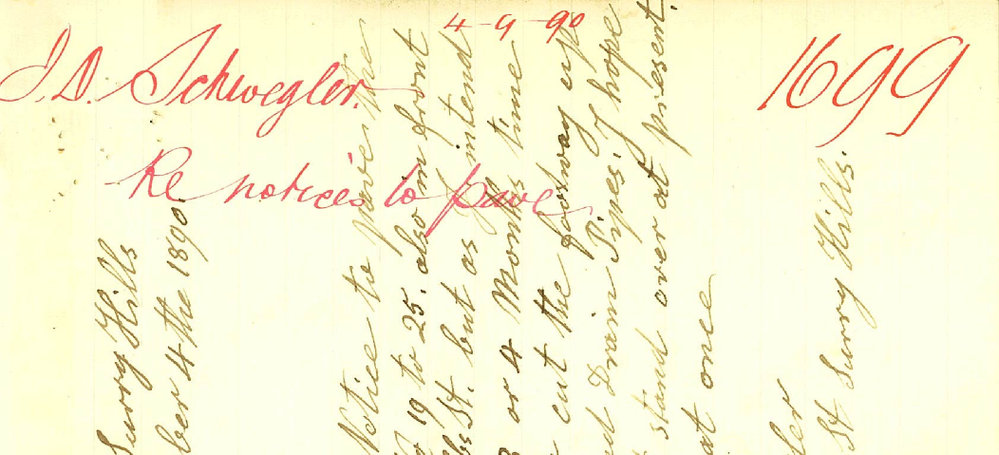 4-9-90
J.D. Schwegler.
1699
Re notices to pave
Surry Hills
ber 4the 1890.
Notice to pave the
19 to 25. also in front
St. but as I intend
or 4 Months time
cut the footway up
Drain Pipes. I hope
stand over at present.
at once
ler
St Surry Hills.